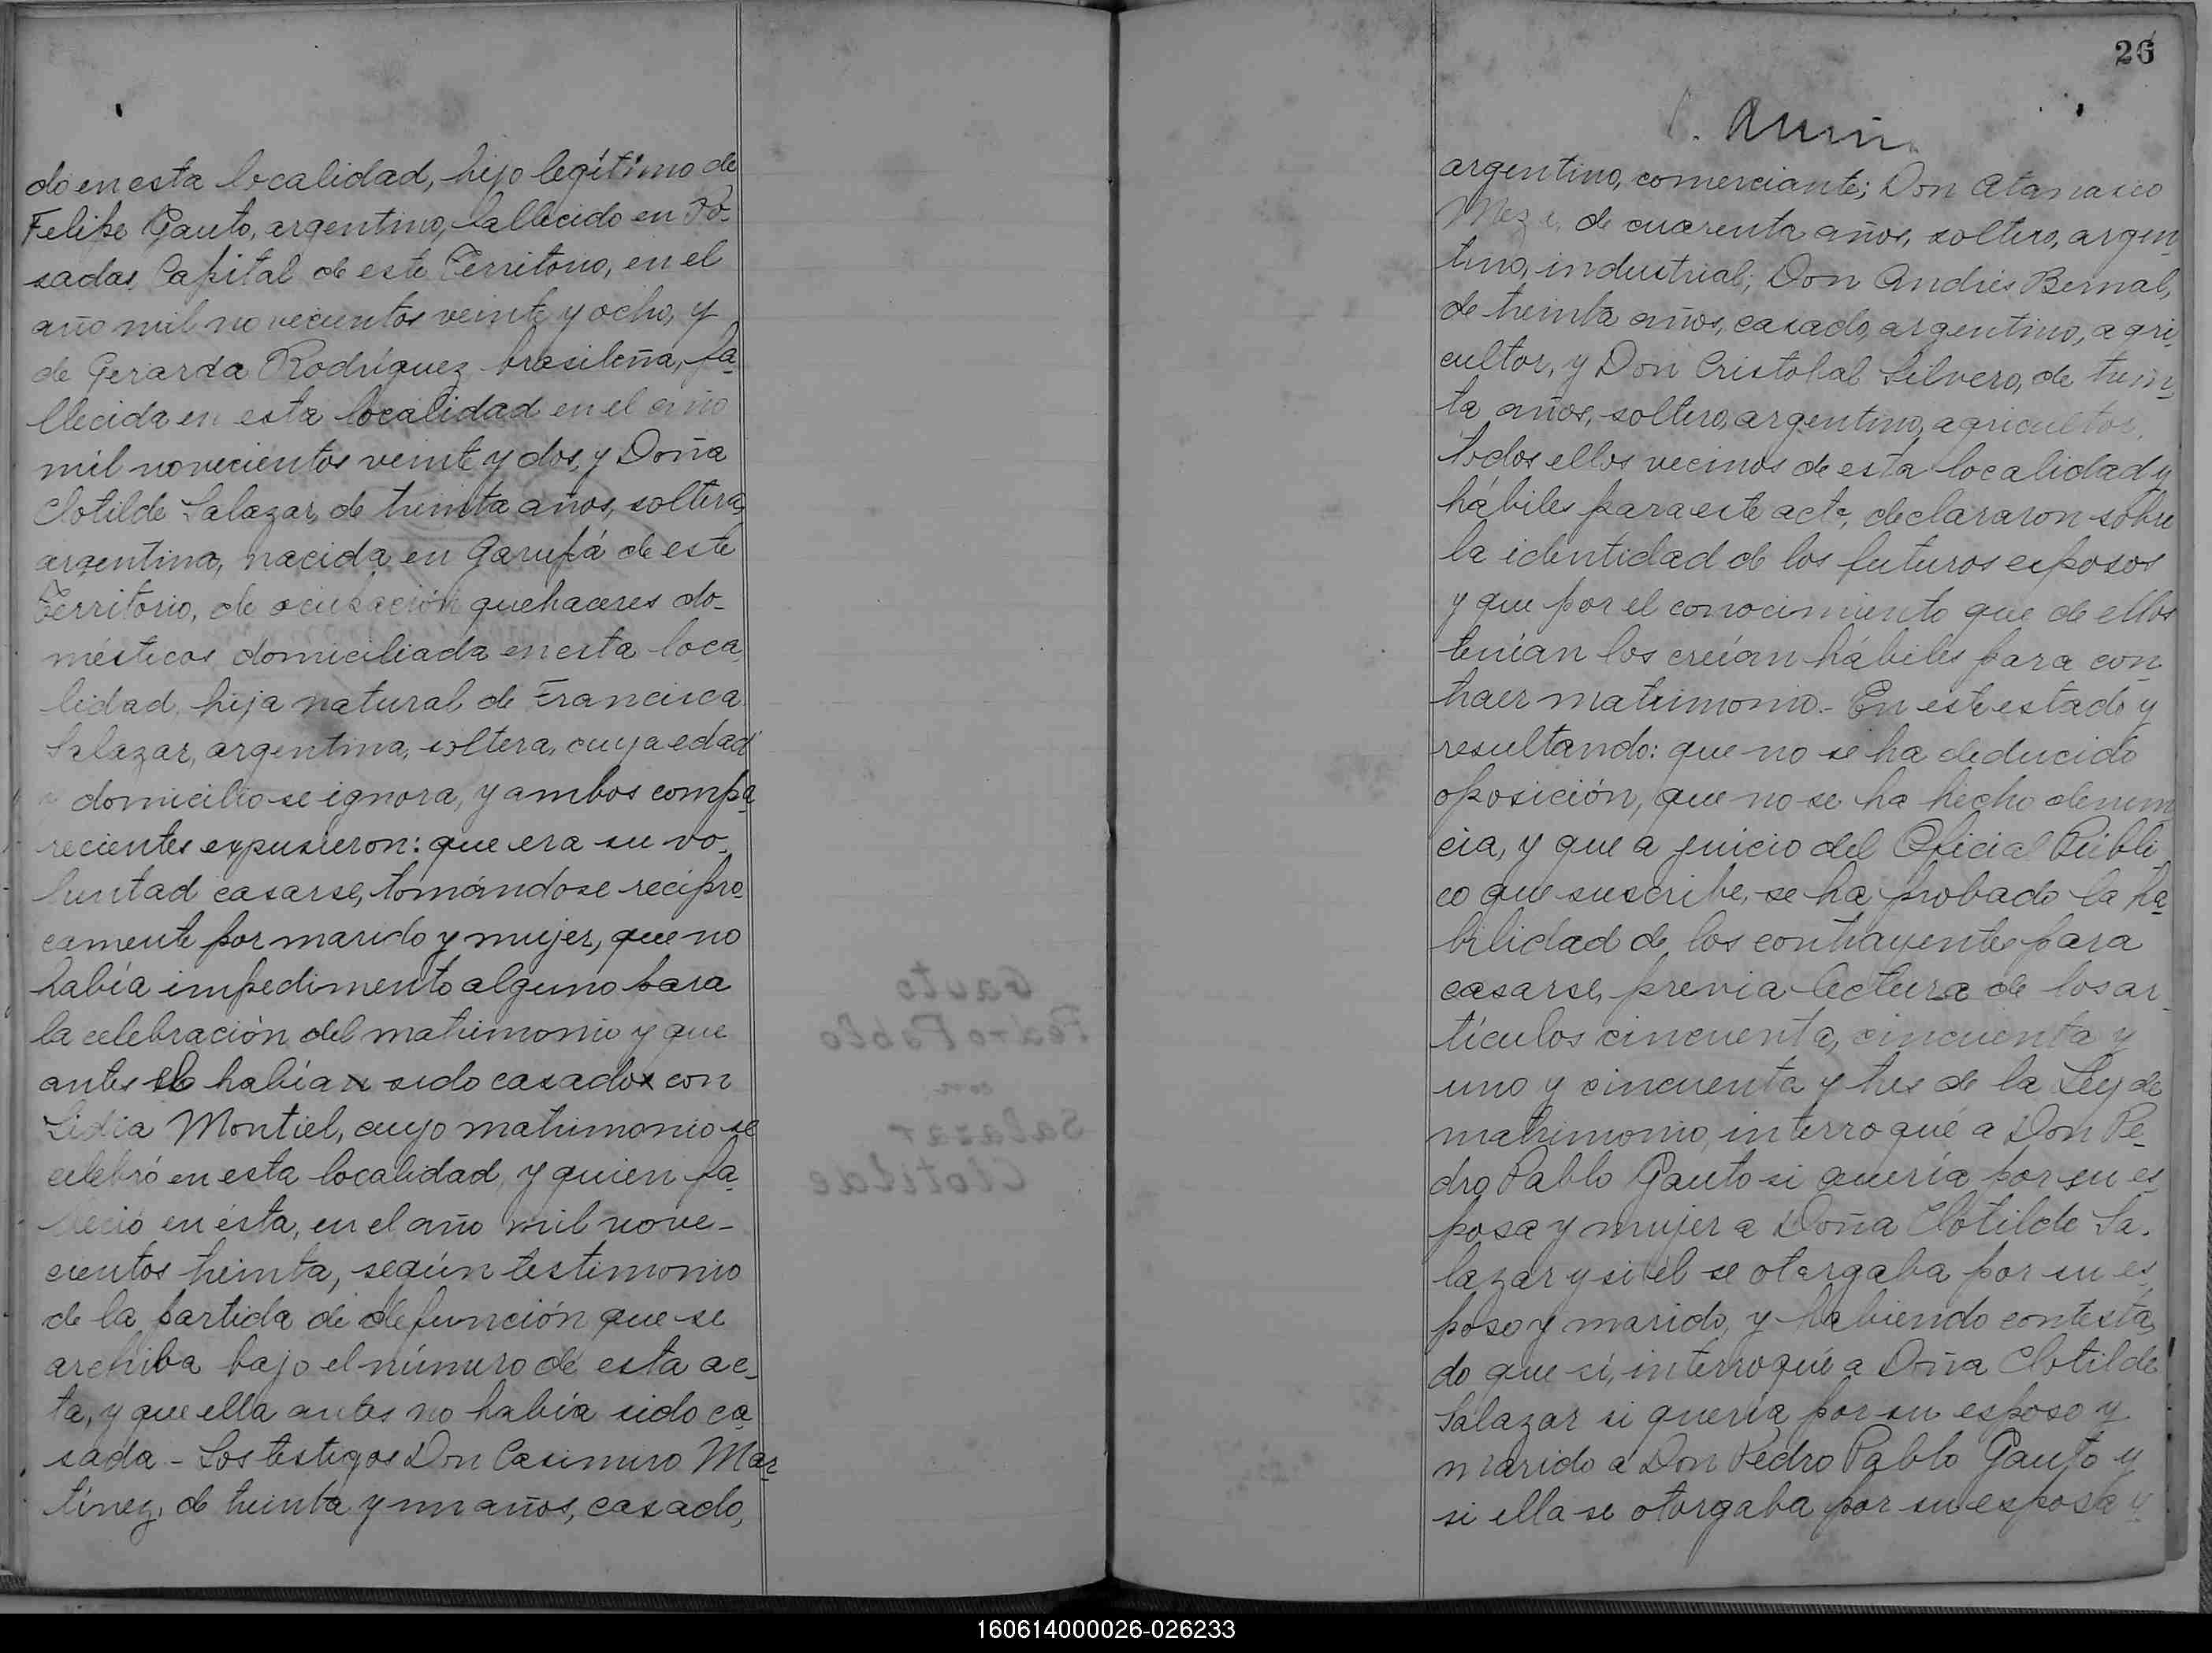 do en esta localidad, hijo legítimo de
Felipe Gauto, argentino, fallecido en Po-
sadas, Capital de este Territorio, en el
año mil novecientos veinte y ocho, y
de Gerarda Rodríguez, brasileña, fa-
llecida en esta localidad en el año
mil novecientos veinte y dos, y Doña
Clotilde Salazar, de treinta años, soltera,
argentina, nacida en Garupá de este
Territorio, de ocupación quehaceres do-
mésticos, domiciliada en esta loca-
lidad, hija natural de Francisca
Salazar, argentina, soltera, cuya edad
domicilio se ignora, y ambos compa-
recientes expusieron: que era su vo-
luntad casarse, tomándose recípro-
camente por marido y mujer, que no
había impedimento alguno para
la celebración del matrimonio y que
antes el había sido casado con
Lidia Montiel, cuyo matrimonio se
celebró en esta localidad, y quien fa-
lleció en ésta, en el año mil nove-
cientos treinta, según testimonio
de la partida de defunción que se
archiba bajo el número de esta ac-
ta, y que ella antes no había sido ca-
sada - Los testigos Don Casimiro Mar-
tínez, de treinta y un años, casado,
Gauto
Pedro Pablo
con
Salazar
Clotilde
26
argentino, comerciante; Don Atanasio
Meza, de cuarenta años, soltero, argen-
tino, industrial; Don Andrés Bernal,
de treinta años, casado, argentino, agri-
cultor, y Don Cristobal Silvero, de trein-
ta años, soltero, argentino, agricultor,
todos ellos vecinos de esta localidad y
hábiles para este acto, declararon sobre
la identidad de los futuros esposos
y que por el conocimiento que de ellos
tenían los creían hábiles para con-
traer matrimonio.- En este estado y
resultando: que no se ha deducido
oposición, que no se ha hecho denun-
cia, y que a juicio del Oficial Públi-
co que suscribe, se ha probado la ha-
bilidad de los contrayentes para
casarse, previa lectura de los ar-
tículos cincuenta, cincuenta y
uno y cincuenta y tres de la Ley de
matrimonio, interrogué a Don Pe-
dro Pablo Gauto si quería por su es-
posa y mujer a Doña Clotilde Sa-
lazar y si él se otorgaba por su es-
poso y marido, y habiendo contesta-
do que sí, interrogué a Doña Clotilde
Salazar si quería por su esposo y
marido a Don Pedro Pablo Gauto y
si ella se otorgaba por su esposa y
160614000026-026233